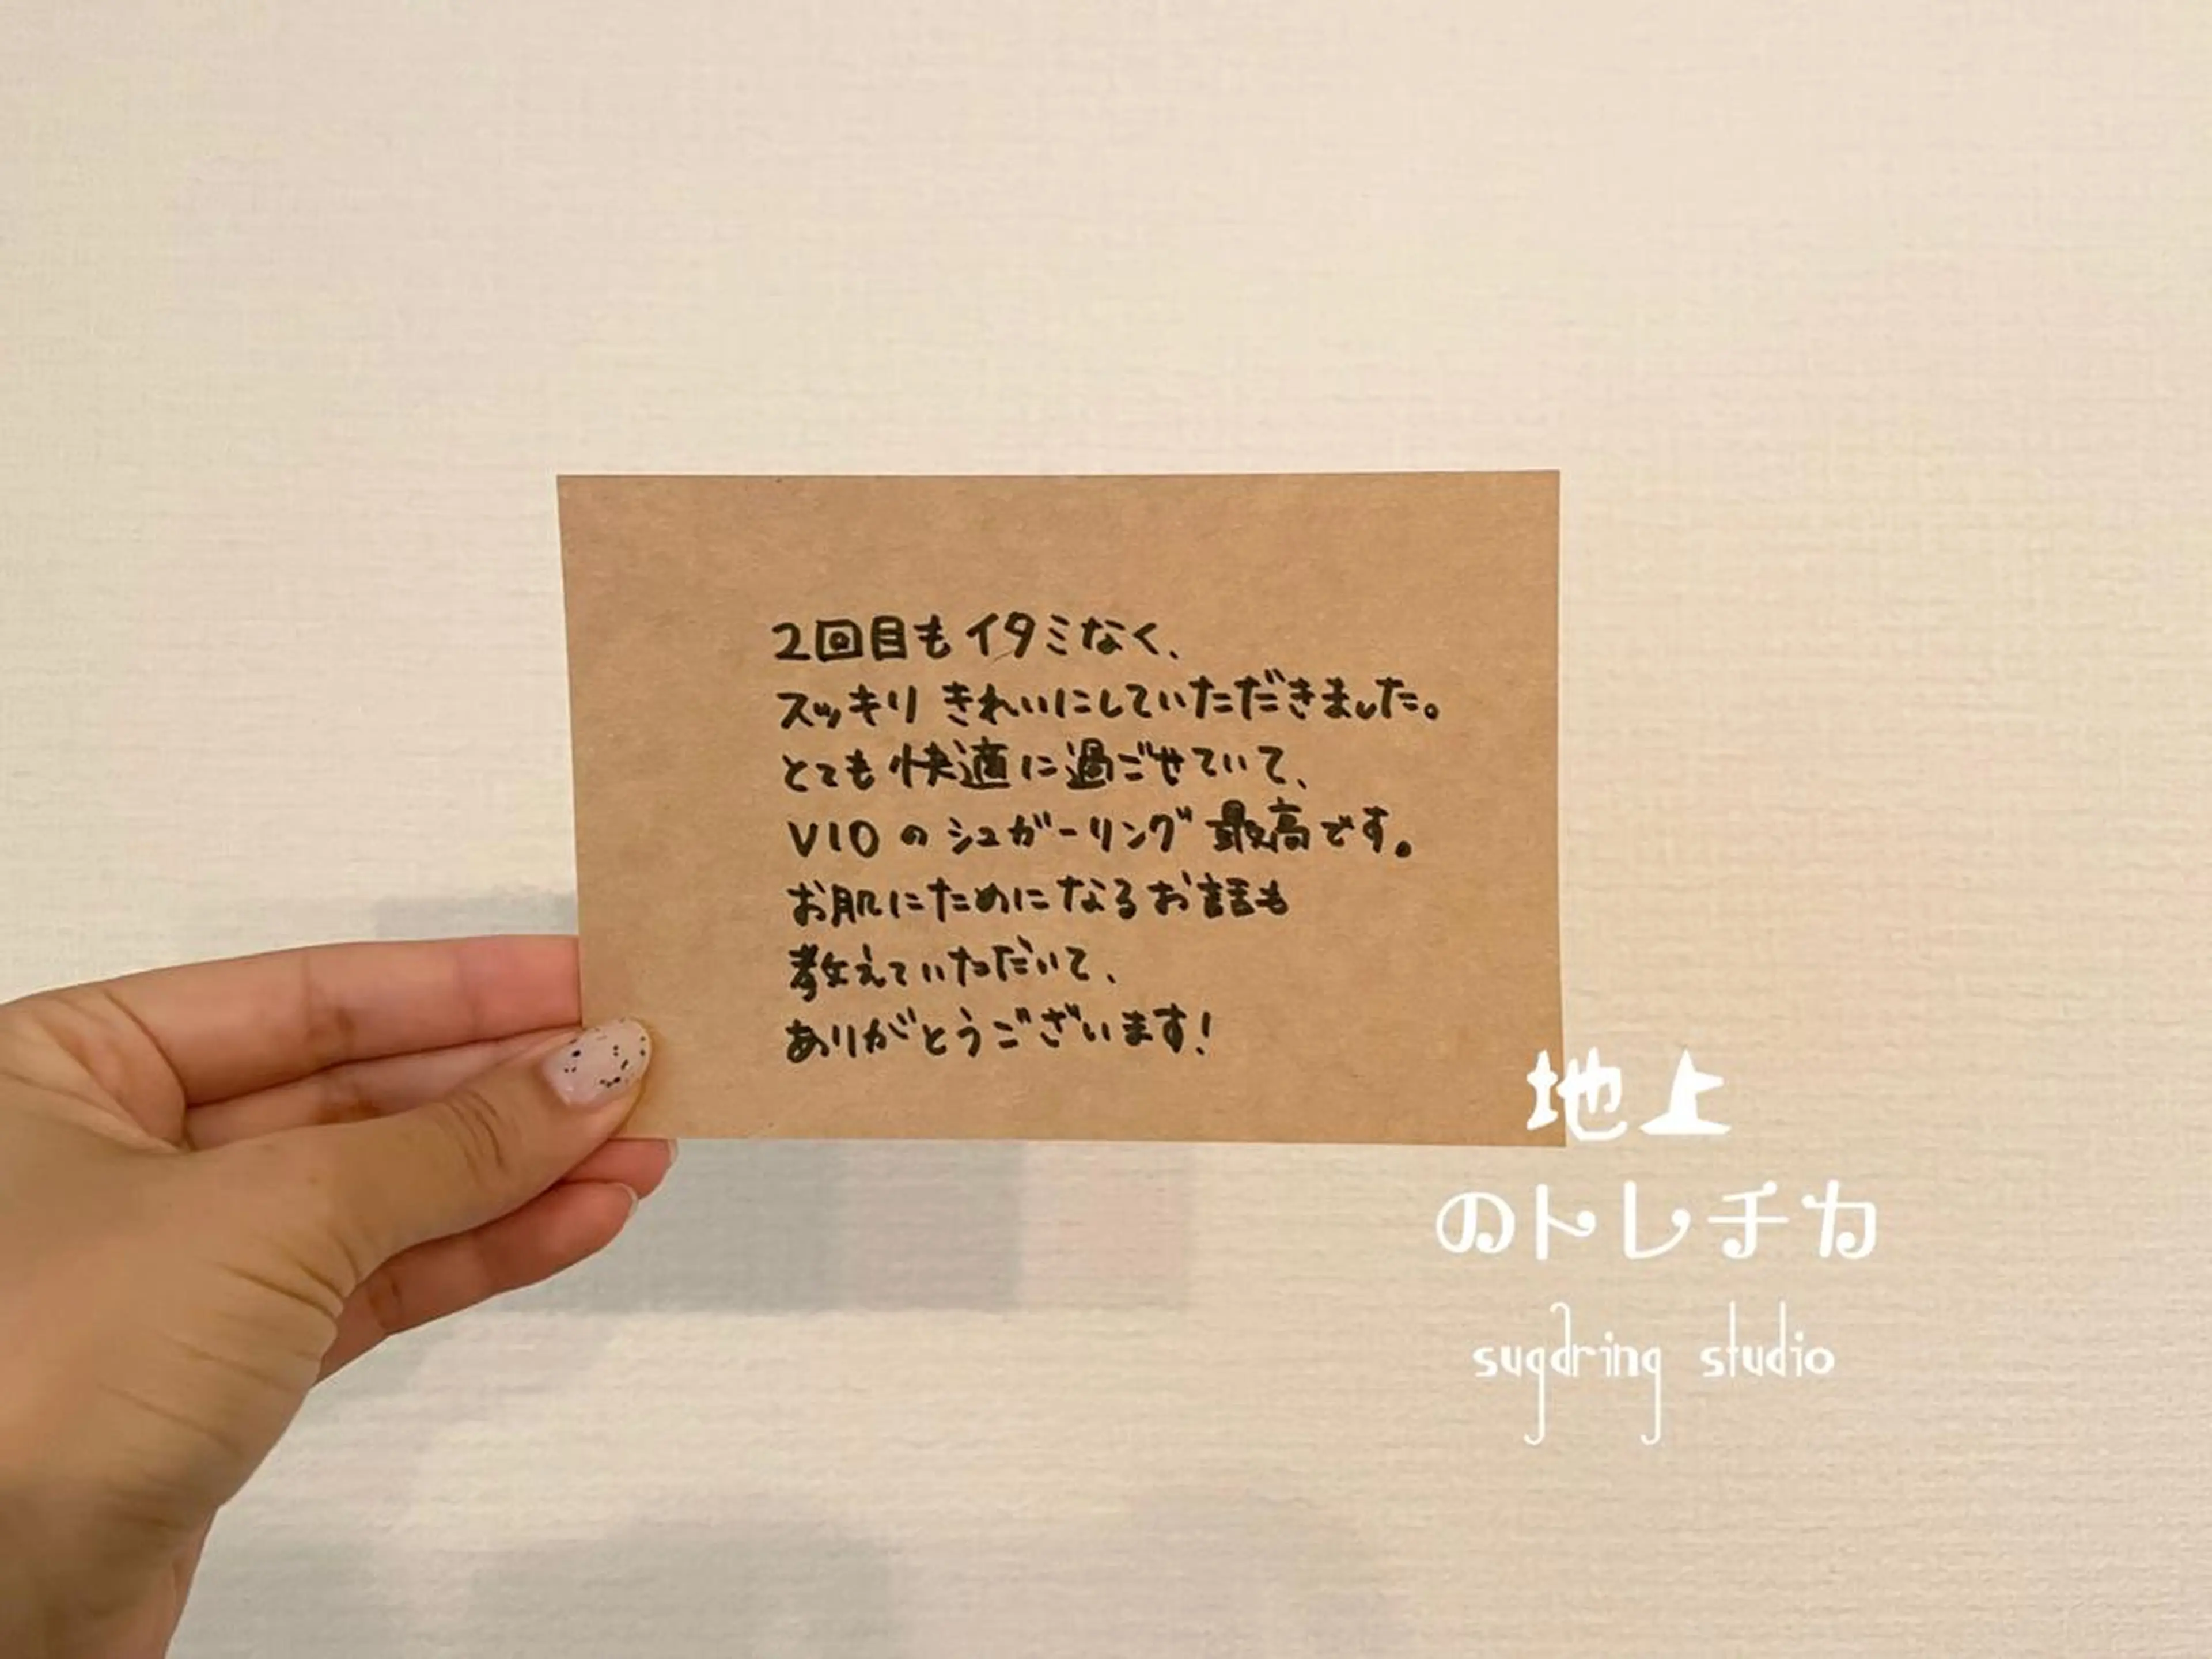 2回目もイタミなく、
スッキリ きれいにしていただきました。
とても快適に過ごせていて、
VIOのシュガーリング最高です。
お肌にためになるお話も
教えていただいて、
ありがとうございます!
地上
のトレチカ
sugaring studio